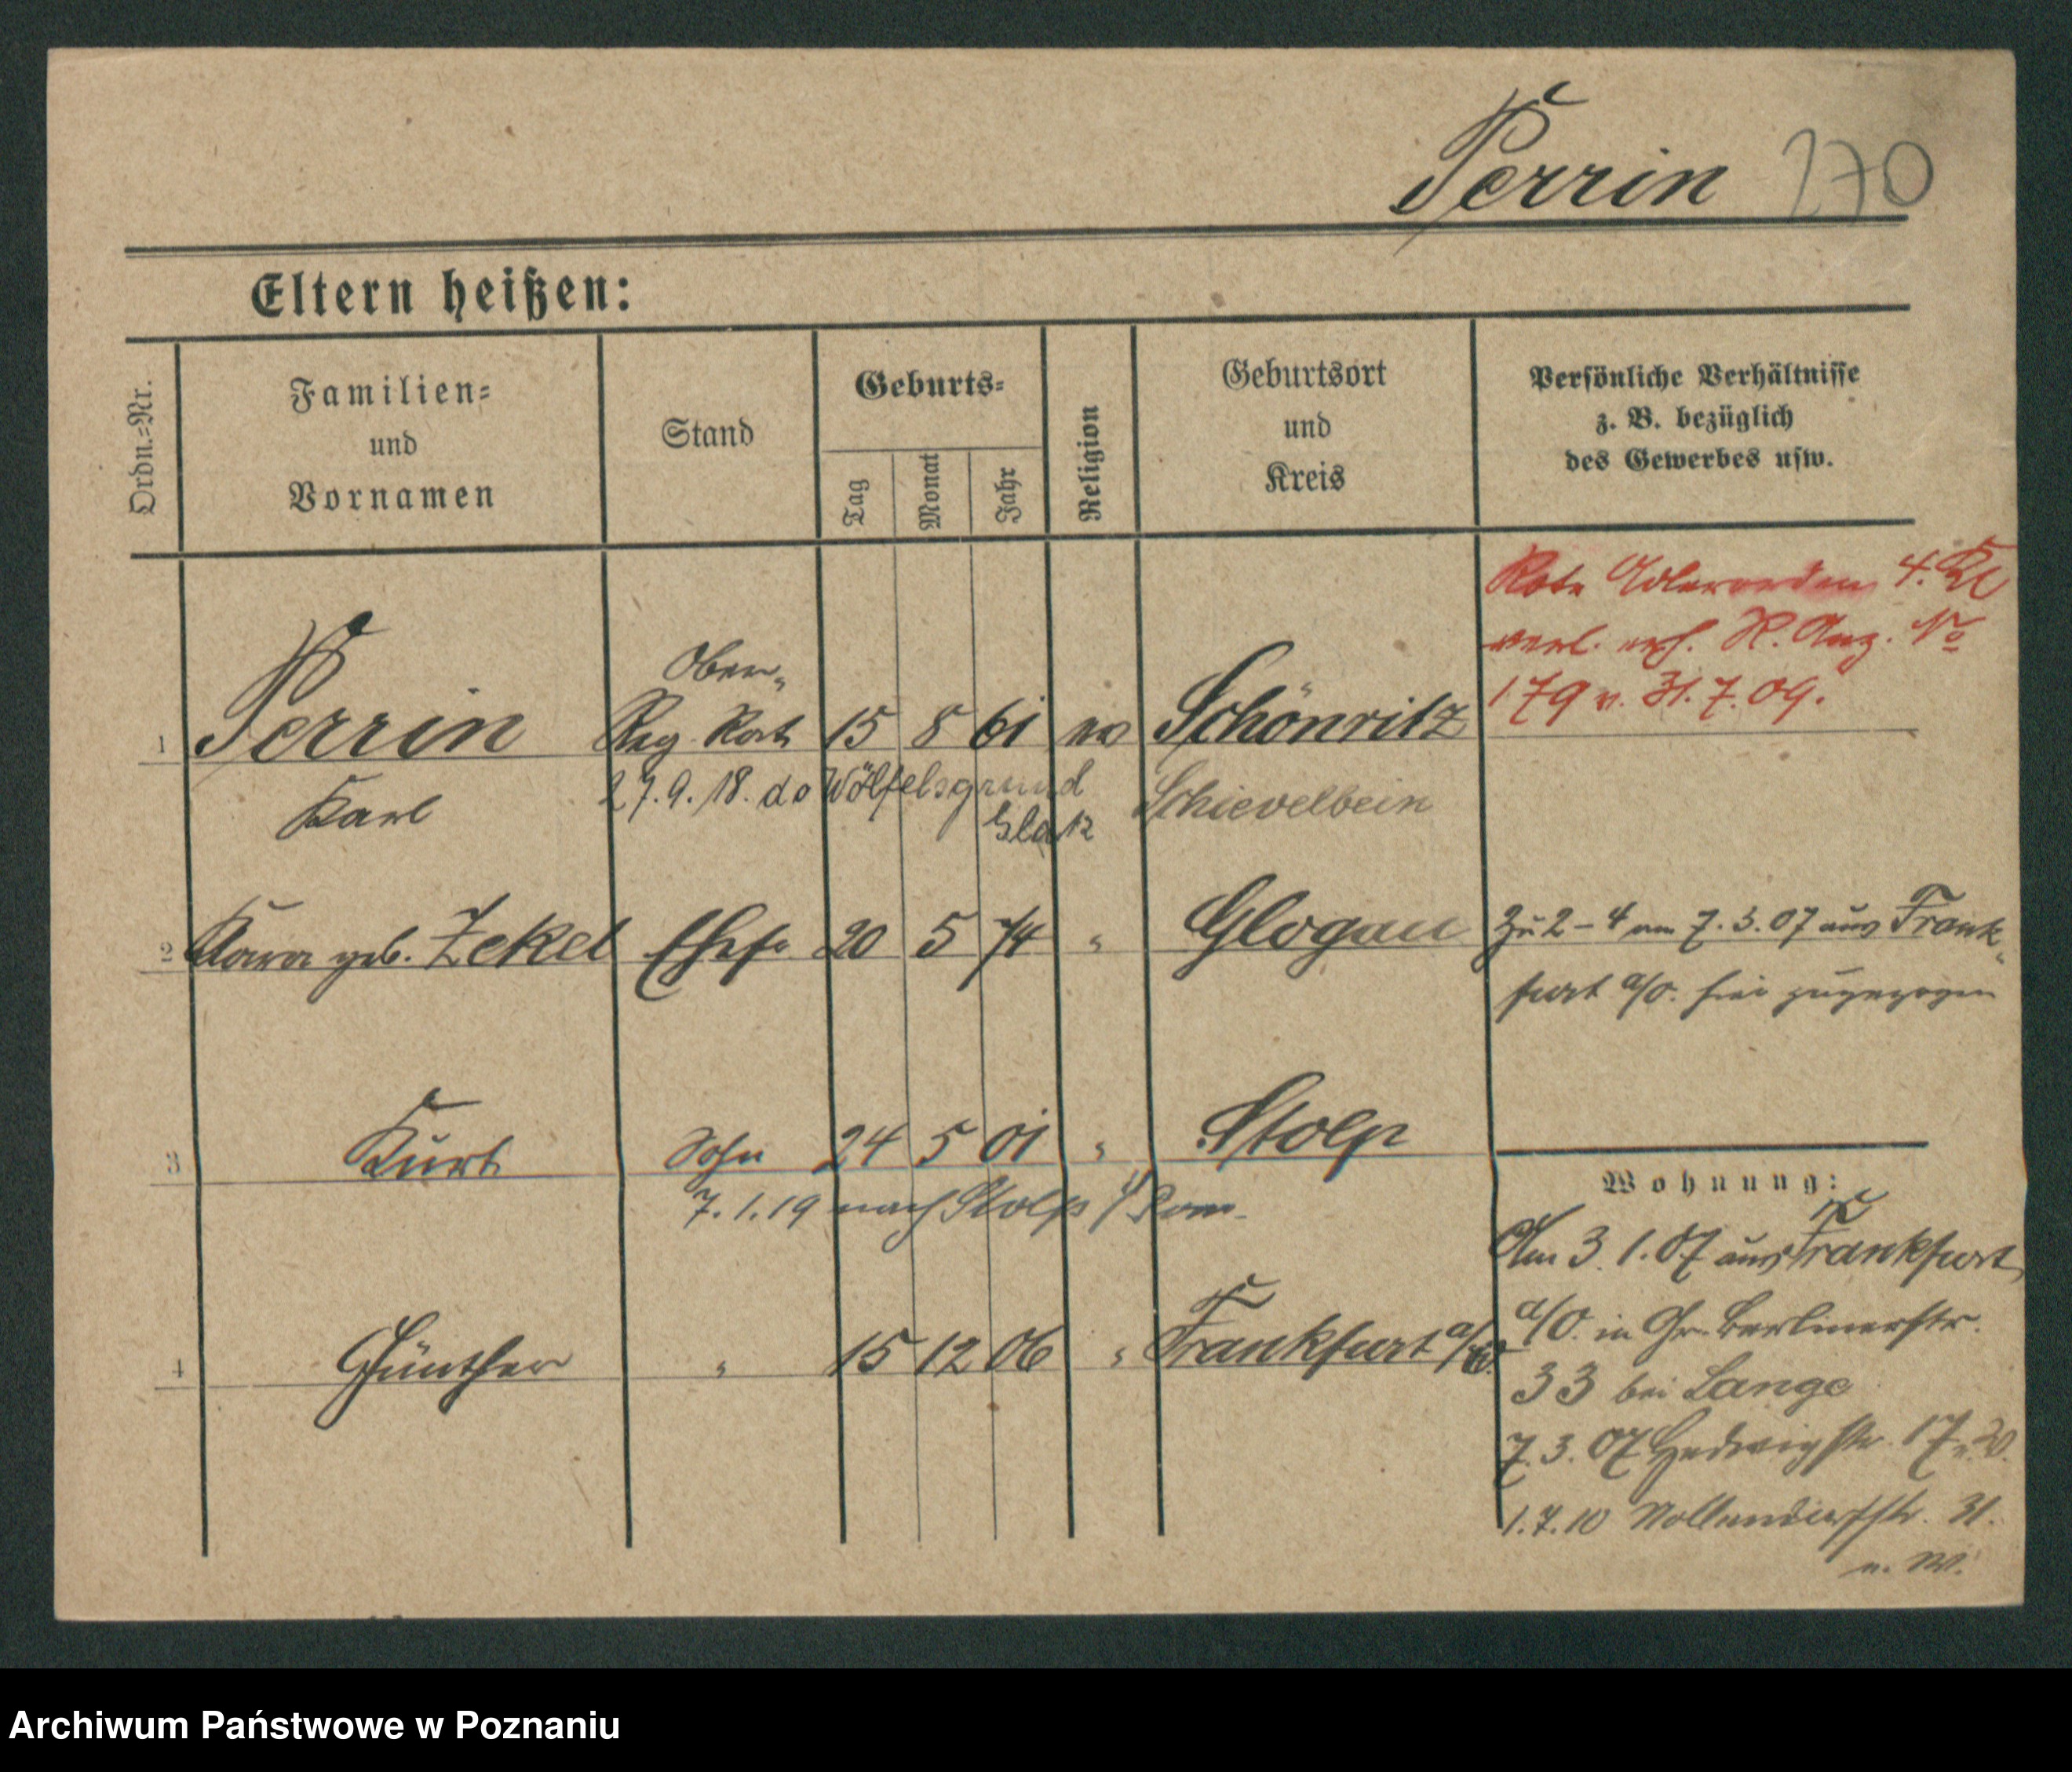 Perrin 270
Eltern heißen:
Ordn.-Nr.
Familien-
und
Vornamen
Stand
Geburts-
Tag
Monat
Jahr
Religion
Geburtsort
und
Kreis
Persönliche Verhältnisse
z. B. bezüglich
des Gewerbes usw.
Rote Adlerorden 4. Kl
verl. R. Anz. No
179 v. 31.7.09.
Ober-
1 Perrin Reg. Rat 15 8 61 ev Schönritz
Karl 27.9.18. do Wölfelsgrund Schievelbein
Glatz
2 Klara geb. Zekel Ehefr. 20 5 74 " Glogau
Zu 2–4 am 7.3.07 aus Frank-
furt a/O. hier zugezogen
3 Kurt Sohn 24 5 01 " Stolp
7.1.19 nach Stolp i/Pom.
4 Günther " 15 12 06 " Frankfurt a/O.
Wohnung:
Am 3.1.07 aus Frankfurt
a/O. in Gr. Berlinerstr.
33 bei Lange
7.3.07 Hedwigstr. 17
1.7.10 Nollendorfstr. 31.
Archiwum Państwowe w Poznaniu